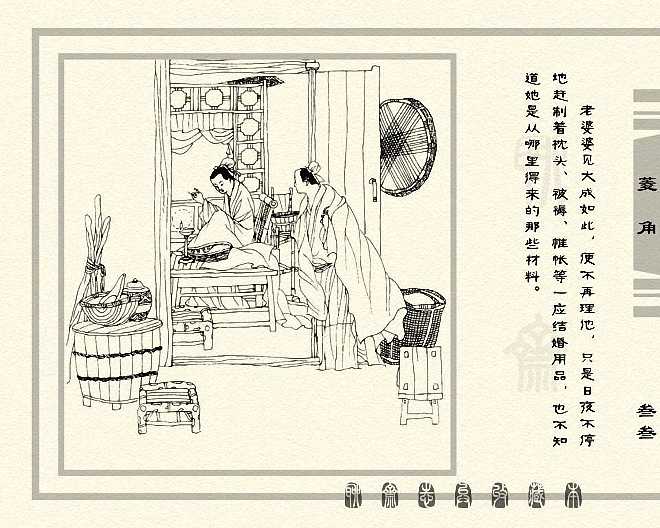 老婆婆见大成如此，便不再理他，只是日夜不停
地赶制着枕头、被褥、帷帐等一应结婚用品，也不知
道她是从哪里得来的那些材料。
菱角
叁叁
聊斋志异收藏本